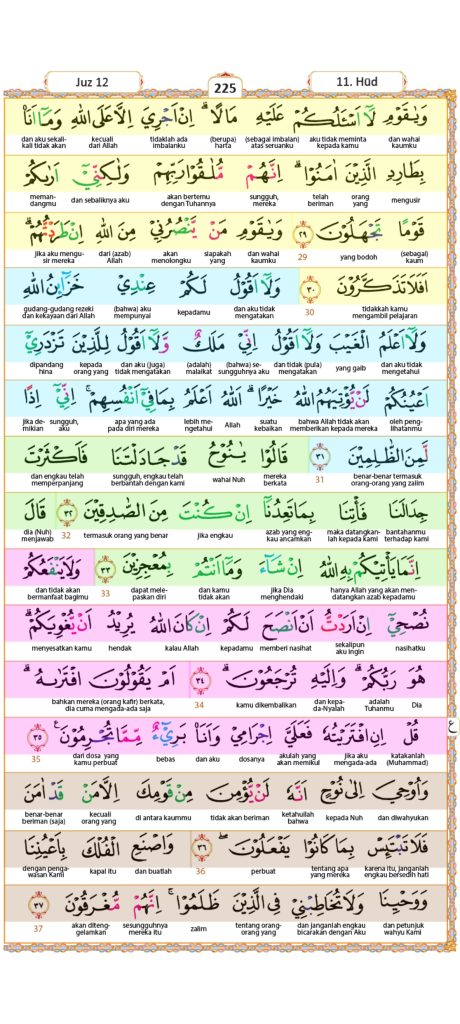 Juz 12
225
11. Hūd
وَيٰقَوْمِ لَآ اَسْـَٔلُكُمْ عَلَيْهِ مَالًاۗ اِنْ اَجْرِيَ اِلَّا عَلَى اللّٰهِ وَمَآ اَنَا۠
dan wahai kaumku aku tidak meminta kepada kamu (sebagai imbalan) atas seruanku (berupa) harta tidaklah ada imbalanku kecuali dari Allah dan aku sekali-kali tidak akan
بِطَارِدِ الَّذِيْنَ اٰمَنُوْاۗ اِنَّهُمْ مُّلٰقُوْا رَبِّهِمْ وَلٰكِنِّيْٓ اَرٰىكُمْ
mengusir orang yang telah beriman sungguh, mereka akan bertemu dengan Tuhannya dan sebaliknya aku memandangmu
قَوْمًا تَجْهَلُوْنَ ٢٩ وَيٰقَوْمِ مَنْ يَّنْصُرُنِيْ مِنَ اللّٰهِ اِنْ طَرَدْتُّهُمْۗ
(sebagai) kaum yang bodoh 29 dan wahai kaumku siapakah yang akan menolongku dari (azab) Allah Jika aku mengusir mereka
اَفَلَا تَذَكَّرُوْنَ ٣٠ وَلَآ اَقُوْلُ لَكُمْ عِنْدِيْ خَزَاۤىِٕنُ اللّٰهِ
tidakkah kamu mengambil pelajaran 30 dan aku tidak mengatakan kepadamu (bahwa) aku mempunyai gudang-gudang rezeki dan kekayaan dari Allah
وَلَآ اَعْلَمُ الْغَيْبَ وَلَآ اَقُوْلُ اِنِّيْ مَلَكٌ وَّلَآ اَقُوْلُ لِلَّذِيْنَ تَزْدَرِيْٓ
dan aku tidak mengetahui yang gaib dan tidak (pula) mengatakan (bahwa) sesungguhnya aku (adalah) malaikat dan aku (juga) tidak mengatakan kepada orang yang dipandang hina
اَعْيُنُكُمْ لَنْ يُّؤْتِيَهُمُ اللّٰهُ خَيْرًاۗ اَللّٰهُ اَعْلَمُ بِمَا فِيْٓ اَنْفُسِهِمْۚ اِنِّيْٓ اِذًا
oleh penglihatanmu bahwa Allah tidak akan memberikan kepada mereka suatu kebaikan Allah lebih mengetahui apa yang ada pada diri mereka sungguh, aku jika demikian
لَّمِنَ الظّٰلِمِيْنَ ٣١ قَالُوْا يٰنُوْحُ قَدْ جَادَلْتَنَا فَاَكْثَرْتَ
benar-benar termasuk orang-orang yang zalim 31 mereka berkata wahai Nuh sungguh, engkau telah berbantah dengan kami dan engkau telah memperpanjang
جِدَالَنَا فَأْتِنَا بِمَا تَعِدُنَآ اِنْ كُنْتَ مِنَ الصّٰدِقِيْنَ ٣٢ قَالَ
bantahanmu terhadap kami maka datangkanlah kepada kami azab yang engkau ancamkan jika engkau termasuk orang yang benar 32 dia (Nuh) menjawab
اِنَّمَا يَأْتِيْكُمْ بِهِ اللّٰهُ اِنْ شَاۤءَ وَمَآ اَنْتُمْ بِمُعْجِزِيْنَ ٣٣ وَلَا يَنْفَعُكُمْ
hanya Allah yang akan mendatangkan azab kepadamu jika Dia menghendaki dan kamu tidak akan dapat melepaskan diri 33 dan tidak akan bermanfaat bagimu
نُصْحِيْٓ اِنْ اَرَدْتُّ اَنْ اَنْصَحَ لَكُمْ اِنْ كَانَ اللّٰهُ يُرِيْدُ اَنْ يُّغْوِيَكُمْۗ
nasihatku sekalipun aku ingin memberi nasihat kepadamu kalau Allah hendak menyesatkan kamu
هُوَ رَبُّكُمْۗ وَاِلَيْهِ تُرْجَعُوْنَۗ ٣٤ اَمْ يَقُوْلُوْنَ افْتَرٰىهُۗ
Dia adalah Tuhanmu dan kepada-Nyalah kamu dikembalikan 34 bahkan mereka (orang kafir) berkata, dia cuma mengada-ada saja
قُلْ اِنِ افْتَرَيْتُهٗ فَعَلَيَّ اِجْرَامِيْ وَاَنَا۠ بَرِيْۤءٌ مِّمَّا تُجْرِمُوْنَ ࣖ ٣٥
katakanlah (Muhammad) jika aku mengada-ada akulah yang akan memikul dosanya dan aku bebas dari dosa yang kamu perbuat 35
ع
وَاُوْحِيَ اِلٰى نُوْحٍ اَنَّهٗ لَنْ يُّؤْمِنَ مِنْ قَوْمِكَ اِلَّا مَنْ قَدْ اٰمَنَ
dan diwahyukan kepada Nuh ketahuilah bahwa tidak akan beriman di antara kaummu kecuali orang yang benar-benar beriman (saja)
فَلَا تَبْتَىِٕسْ بِمَا كَانُوْا يَفْعَلُوْنَۖ ٣٦ وَاصْنَعِ الْفُلْكَ بِاَعْيُنِنَا
karena itu, janganlah engkau bersedih hati tentang apa yang mereka perbuat 36 dan buatlah kapal itu dengan pengawasan Kami
وَوَحْيِنَا وَلَا تُخَاطِبْنِيْ فِى الَّذِيْنَ ظَلَمُوْاۚ اِنَّهُمْ مُّغْرَقُوْنَ ٣٧
dan petunjuk wahyu Kami dan janganlah engkau bicarakan dengan Aku tentang orang-orang yang zalim sesungguhnya mereka itu akan ditenggelamkan 37